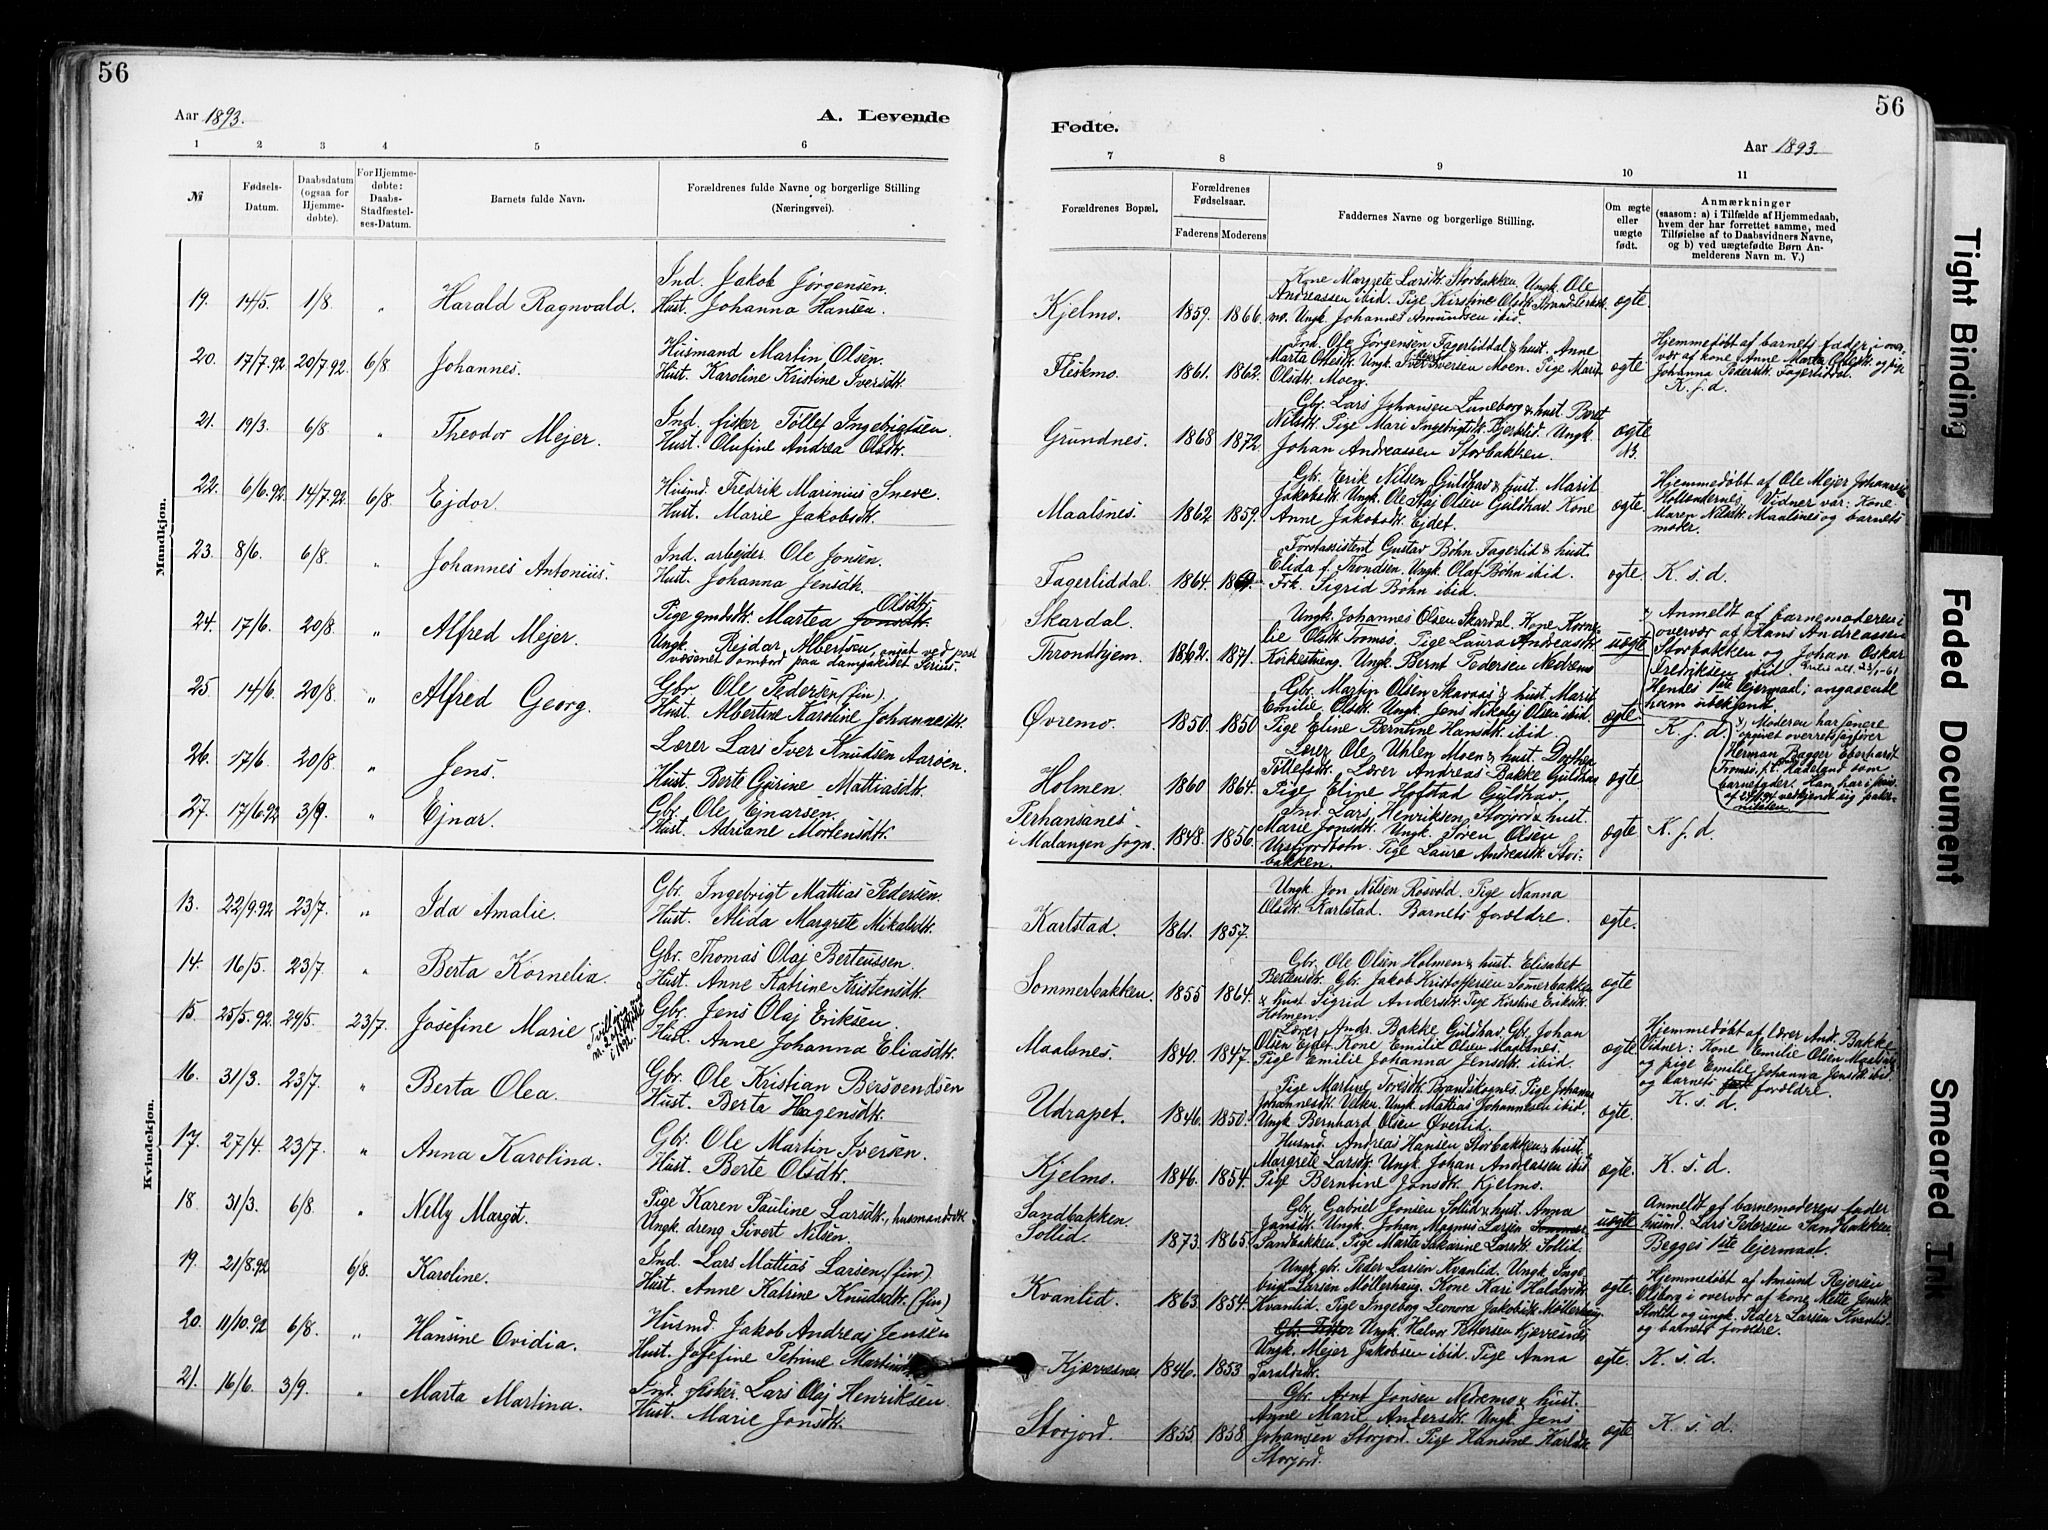 56
Aar 1893.
A. Levende
1 2 3 4 5 6
№
Fødsels-Datum.
Daabsdatum (ogsaa for Hjemmedøbte).
For Hjemmedøbte: Daabs-Stadfæstelses-Datum.
Barnets fulde Navn.
Forældrenes fulde Navne og borgerlige Stilling (Næringsvei).
Mandkjøn.
19. 14/5. 1/8. " Harald Ragnvald. Ind. Jakob Jørgensen.
Hust. Johanna Hansen.
20. 17/7.92 20/7.92 6/8 Johannes. Husmand Martin Olsen.
Hust. Karoline Kristine Iversdtr.
21. 19/3. 6/8. " Theodor Mejer. Ind. fisker Tøllef Ingebrigtsen.
Hust. Olufine Andrea Olsdtr.
22. 6/6.92 14/7.92 6/8 Ejdor. Husmd. Fredrik Marinius Sneve.
Hust. Marie Jakobsdtr.
23. 8/6. 6/8. " Johannes Antonius. Ind. arbejder Ole Jonsen.
Hust. Johanna Jensdtr.
24. 17/6. 20/8. " Alfred Mejer. Pige gmdsdtr. Martea Jonsdtr. Olsdtr.
Ungk. Rejdar Albertsen, ansat ved post
væsenet ombord paa dampskibet Sirius.
25. 14/6. 20/8. " Alfred Georg. Gbr. Ole Pedersen (fin).
Hust. Albertine Karoline Johannesdtr.
26. 17/6. 20/8. " Jens. Lærer Lars Iver Knudsen Aarsen.
Hust. Berte Gurine Mattiasdtr.
27. 17/6.92 3/9. " Ejnar. Gbr. Ole Ejnarsen.
Hust. Adriane Mortensdtr.
Kvindekjøn.
13. 22/9.92 23/7. " Ida Amalie. Gbr. Ingebrigt Mattias Pedersen.
Hust. Alida Margrete Mikalsdtr.
14. 16/5. 23/7. " Berta Kornelia. Gbr. Thomas Olaj Berteussen.
Hust. Anne Katrine Kristensdtr.
15. 25/5.92 29/5. 23/7. Josefine Marie Gbr. Jens Olaj Eriksen.
Hust. Anne Johanna Eliasdtr.
16. 31/3. 23/7. " Berta Olea. Gbr. Ole Kristian Bersvendsen
Hust. Berta Hagensdtr.
17. 27/4. 23/7. " Anna Karolina. Gbr. Ole Martin Iversen.
Hust. Berte Olsdtr.
18. 31/3. 6/8. " Nelly Margot. Pige Karen Pauline Larsdtr., husmandsdtr
Ungk. dreng Sivert Nilsen.
19. 21/8.92 6/8. Karoline. Ind. Lars Mattias Larsen (fin)
Hust. Anne Katrine Knudsdtr. (fin)
20. 11/10.92 6/8. " Hansine Ovidia. Husmd. Jakob Andreas Jensen
Hust. Josefine Petrine Martinsdtr
21. 16/6. 3/9. " Marta Martina. Ind. fisker Lars Olaj Henriksen
Hust. Marie Jonsdtr.
56
Fødte.
Aar 1893.
7 8 9 10 11
Forældrenes Bopæl.
Forældrenes Fødselsaar.
Faderens Moderens
Faddernes Navne og borgerlige Stilling.
Om ægte eller uægte født.
Anmærkninger
(saasom: a) i Tilfælde af Hjemmedaab,
hvem der har forrettet samme, med
Tilføielse af to Daabsvidners Navne,
og b) ved uægtefødte Børn Anmelderens Navn m. V.)
Kjelmo. 1859. 1866. Kone Margrete Larsdtr. Storbakken. Ungk. Ole
Andreassen ibid. Pige Kirstine Olsdtr.
Ungk. Johannes Amundsen ibid. ægte
Fleskmo. 1861. 1862. Ind. Ole Jørgensen Fagerliddal & hust. Anne
Marta Olesdtr. Ungk. Iver Iversen Moen. Pige Marit
Olsdtr. Moen. ægte Hjemmedøbt af barnets fader i overvær
af kone Anne Marta Olesdtr. og pige
Johanna Pedersdtr. Fagerliddal.
K. s. d.
Grundnes. 1868 1872. Gbr. Lars Johansen Luneborg & hust. Beret
Nilsdtr. Pige Mari Ingebrigtsdtr. Bjerklid. Ungk.
Johan Andreassen Storbakken. ægte
Maalsnes. 1862. 1859. Gbr. Erik Nilsen Guldhav & hust. Marit
Jakobsdtr. Ungk. Ole Olsen Guldhav. Kone
Anne Jakobsdtr. Ejdet. ægte. Hjemmedøbt af Ole Mejer Johannesen
Hollendernes. Vidner var: Kone
Maren Nilsdtr. Maalsnes og barnets
moder.
Fagerliddal. 1864. Forstassistent Gustav Bøhn Fagerlid & hust.
Elida f. Thondsen. Ungk. Olaf Bøhn ibid.
Frk. Sigrid Bøhn ibid. ægte. K. s. d.
Skardal.
Throndhjem. 1862. 1871. Ungk. Johannes Olsen Skardal. Kone Kornelie
Olsdtr. Tromsø. Pige Laura Andreasdtr.
Kirkesteng. Ungk. Bernt Pedersen Nedremo uægte Anmeldt af barnemoderen i
overvær af Hans Andreassen
Storbakken og Johan Oskar
Fredriksen ibid.
Hendes 1ste lejermaal; angaaende
ham ubekjent.
Øvremo. 1850. 1850 Gbr. Martin Olsen Skavaas & hust. Marit
Emilie Olsdtr. Ungk. Jens Nikolaj Olsen ibid.
Pige Eline Berntine Hansdtr. ibid. ægte. K. s. d.
Moderen har senere
opgivet overretssagfører
Herman Bagger Eberhardt
Tromsø
barnefader. Han har i
Holmen. 1860 1864. Lærer Ole Uhlen Moen & hust. Dorthea
Tøllefsdtr. Lærer Andreas Bakke Guldhav
Pige Eline Hofstad Guldhav. ægte
Perhansanes
i Malangen sogn. 1848. 1856. Ind. Lars Henriksen Storjord & hust.
Marie Jonsdtr. Ungk. Søren Olsen
Ursfjordbotn. Pige Laura Andreasdtr. Storbakken. ægte K. s. d.
Karlstad. 1861. 1857. Ungk. Jon Nilsen Rosvold. Pige Nanna
Olsdtr. Karlstad. Barnets forældre. ægte.
Sommerbakken. 1855 1864. Gbr. Ole Olsen Holmen & hust. Elisabet
Bertensdtr. Gbr. Jakob Kristoffersen Somerbakken
& hust Sigrid Andersdtr. Pige Kirstine Eriksdtr.
Holmen. ægte
Maalsnes. 1840. 1847. Lærer Andr. Bakke Guldhav. Gbr. Johan
Olsen Ejdet. Kone Emilie Olsen Maalsnes.
Pige Emilie Johanna Jensdtr. ibid. ægte Hjemmedøbt af lærer And. Bakke
Vidner: Kone Emilie Olsen Maalsnes
og pige Emilie Johanna Jensdtr. ibid
og barnets forældre.
K. s. d.
Udrapet. 1846. 1850. Pige Martine Toresdtr. Brandskognes. Pige Johanna
Johannesdtr. Velku. Ungk. Mattias Johannesen ibid.
Ungk. Bernhard Olsen Øverlid. ægte.
Kjelmo. 1846. 1854. Husmd. Andreas Hansen Storbakken & hust.
Margrete Larsdtr. Ungk. Johan Andreassen ibid
Pige Berntine Jonsdtr. Kjelmo. ægte. K. s. d.
Sandbakken.
Sollid. 1873. 1865. Gbr. Gabriel Jonsen Sollid & hust. Anna
Jansdtr. Ungk. Johan Magnus Larsen
Sandbakken. Pige Marta Sakarine Larsdtr. Sollid. uægte Anmeldt af barnemoderens fader
husmd. Lars Pedersen Sandbakken.
Begges 1ste lejermaal.
Kvantid. 1863. 1854. Ungk. gbr. Peder Larsen Kvantid. Ungk. Ingebrigt
Larsen Møllerhaug. Kone Kari Haldorsdtr.
Kvantid. Pige Ingeborg Leonora Jakobsdtr. Møllerhaug ægte. Hjemmedøbt af Amund Rejersen
Olsborg i overvær af kone Mette Jensdtr.
og ungk. Peder Larsen Kvantid
og barnets forældre.
Kjærvesnes 1846. 1853 Ungk. Halvor Pettersen Kjerresnes
Ungk. Mejer Jakobsen ibid. Pige Anna
Taraldsdtr. ægte. K. s. d.
Storjord. 1855. 1858. Gbr. Arnt Jonsen Nedremo & hust.
Anne Marie Andersdtr. Ungk. Jens
Johansen Storjord. Pige Hansine Karlsdtr.
Storjord. ægte K. s. d.
Tight Binding
Faded Document
Smeared Ink